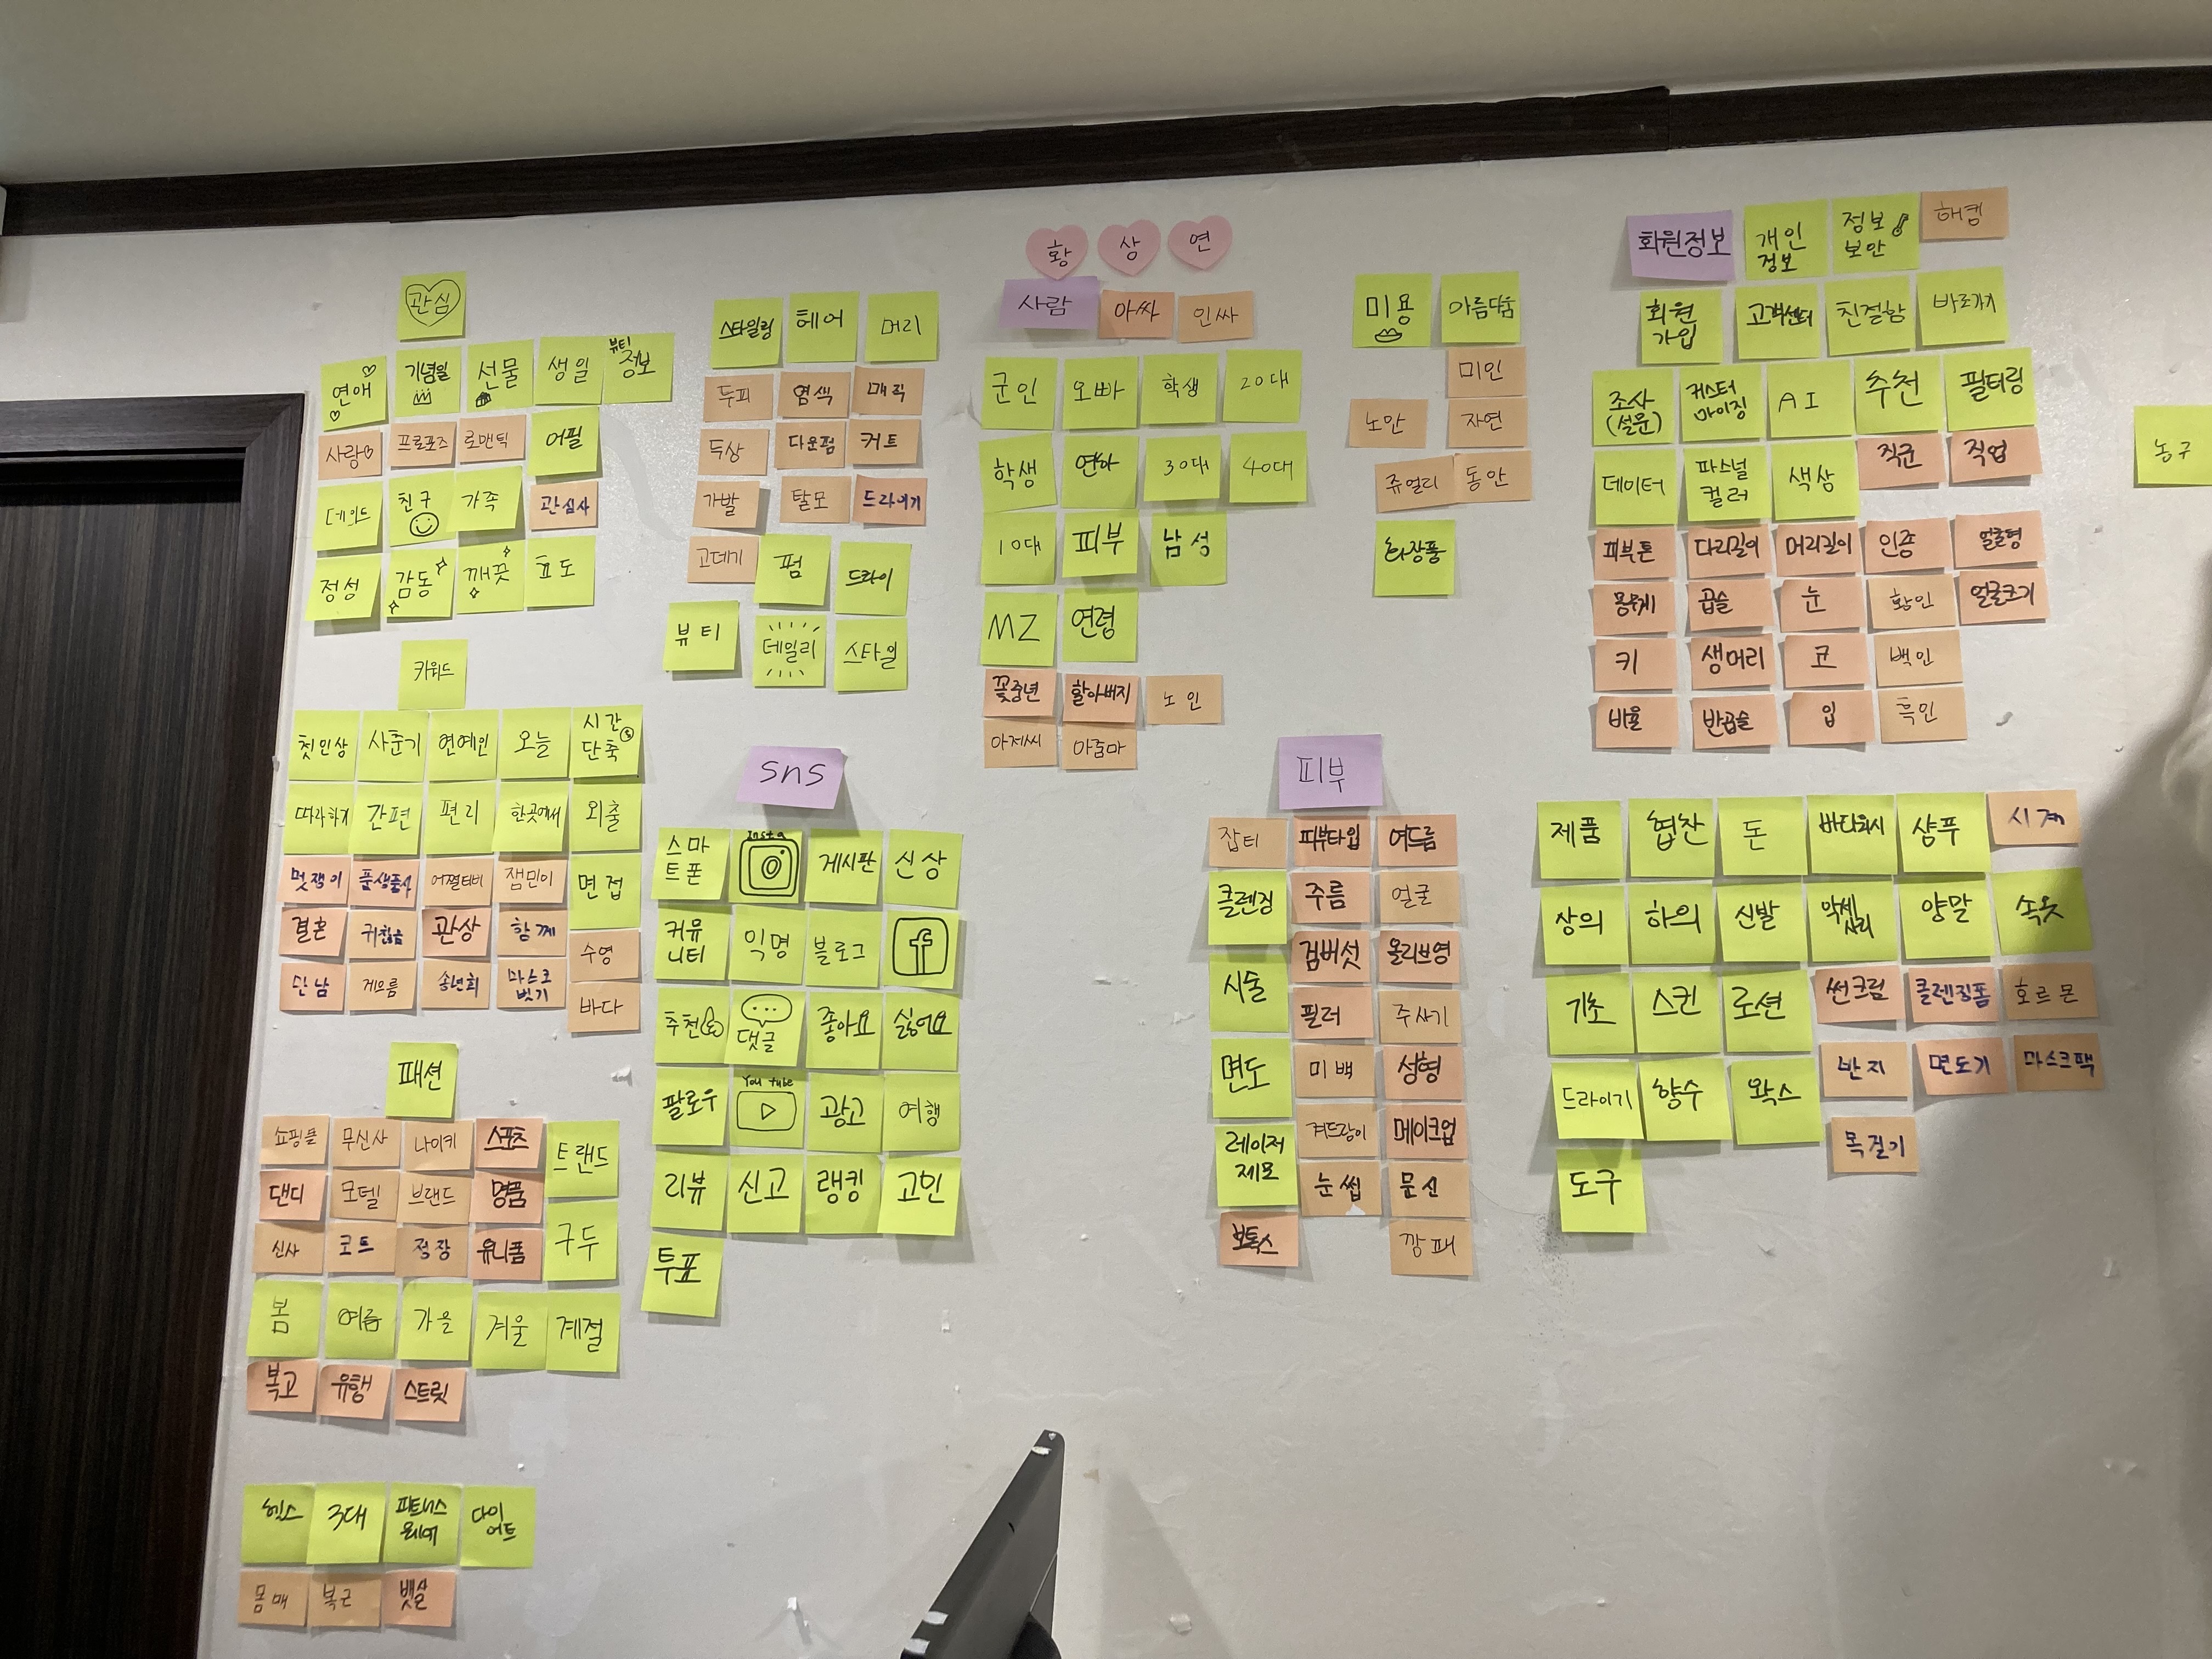 관심
연애
기념일
선물
생일
뷰티
정보
사랑
프로포즈
로맨틱
어필
친구
가족
관심사
정성
감동
깨끗
효도
키워드
첫인상
사춘기
연예인
오늘
시간
단축
따라하기
간편
편리
한곳에서
외출
멋쟁이
폼생폼사
어쩔티비
잼민이
면접
결혼
귀찮음
관상
함께
수영
만남
게으름
송년회
마스크
벗기
바다
패션
쇼핑몰
무신사
나이키
스포츠
트랜드
댄디
모델
브랜드
명품
신사
코트
정장
유니폼
구두
봄
여름
가을
겨울
계절
복고
유행
스트릿
헬스
3대
다이
어트
몸매
복근
뱃살
스타일링
헤어
머리
두피
염색
매직
두상
다운펌
커트
가발
탈모
드라이기
고데기
펌
드라이
뷰티
데일리
스타일
sns
스마
트폰
Insta
게시판
신상
커뮤
니티
익명
블로그
f
추천
댓글
좋아요
싫어요
팔로우
You tube
광고
여행
리뷰
신고
랭킹
고민
투표
황
상
연
사람
아싸
인싸
군인
오빠
학생
20대
학생
연하
30대
40대
10대
피부
남성
MZ
연령
꽃중년
할아버지
노인
아저씨
아줌마
미용
아름다움
미인
노안
자연
쥬얼리
동안
화장품
피부
잡티
피부타입
여드름
클렌징
주름
얼굴
검버섯
올리브영
시술
필러
주사기
면도
미백
성형
겨드랑이
메이크업
레이저
제모
눈썹
문신
보톡스
깡패
회원정보
개인
정보
정보
보안
해킹
회원
가입
고객센터
친절함
바로가기
조사
(설문)
커스터
마이징
AI
추천
필터링
데이터
퍼스널
컬러
색상
직군
직업
피부톤
다리길이
머리길이
인종
얼굴형
몸무게
곱슬
눈
황인
얼굴크기
키
생머리
코
백인
비율
반곱슬
입
흑인
제품
협찬
돈
바디워시
샴푸
시계
상의
하의
신발
악세
사리
양말
속옷
기초
스킨
로션
썬크림
클렌징폼
호르몬
드라이기
향수
왁스
반지
면도기
마스크팩
목걸이
도구
농구